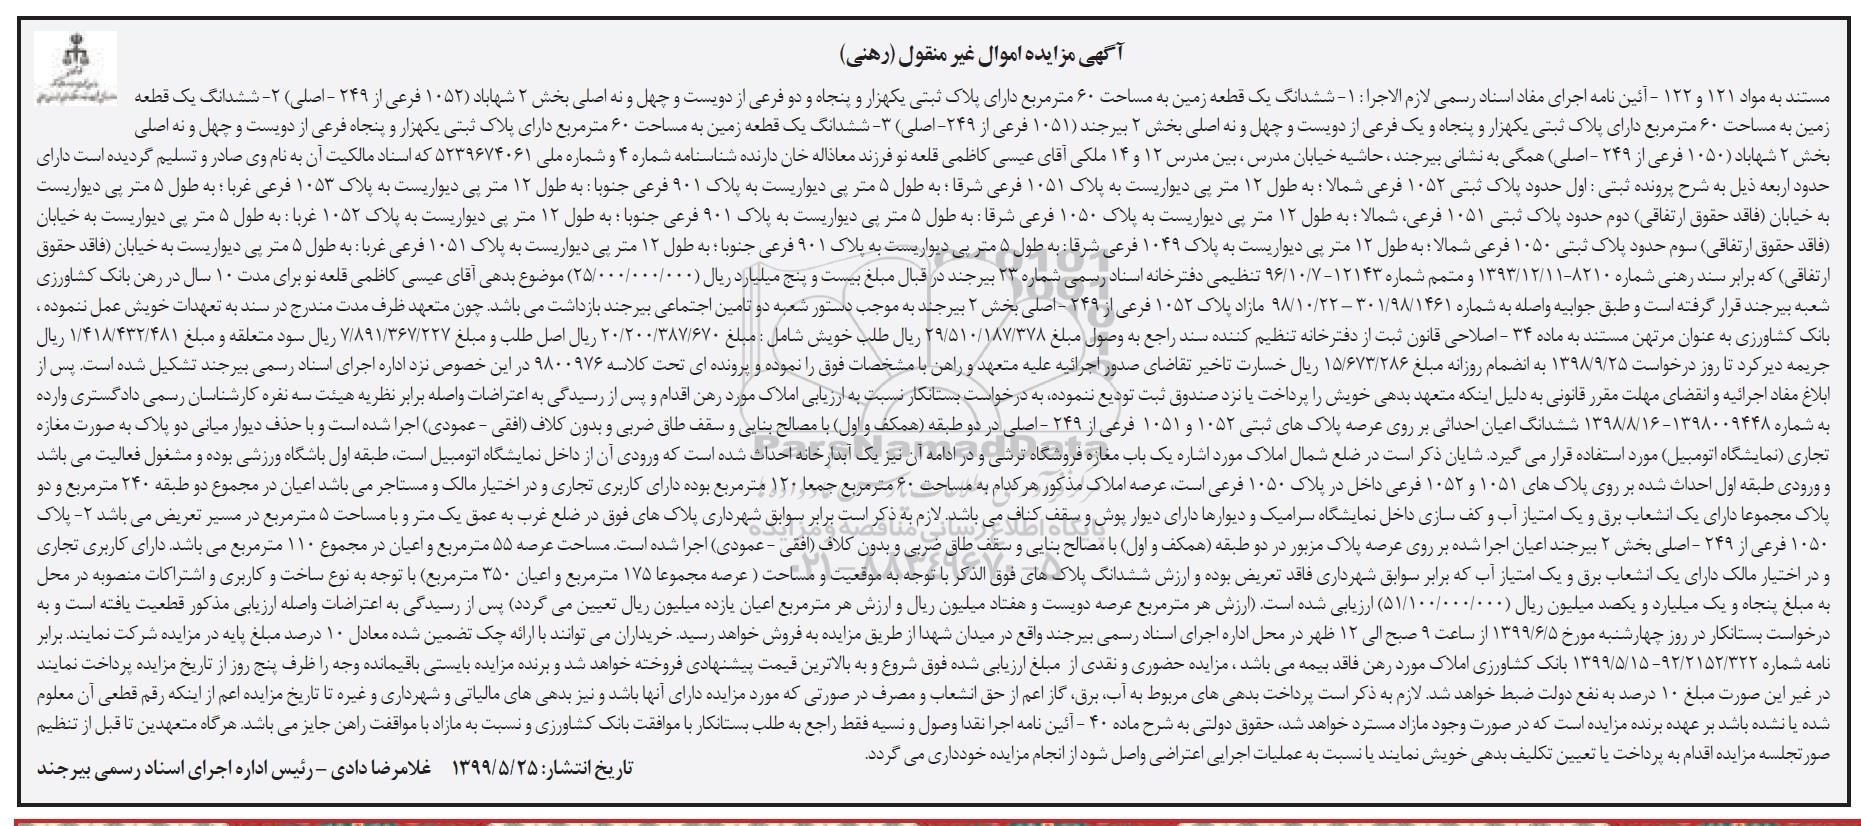 آگهی مزایده اموال غیر منقول (رهنی)
مستند به مواد ۱۲۱ و ۱۲۲ - آئین نامه اجرای مفاد اسناد رسمی لازم الاجرا : ۱- ششدانگ یک قطعه زمین به مساحت ۶۰ مترمربع دارای پلاک ثبتی یکهزار و پنجاه و دو فرعی از دویست و چهل و نه اصلی بخش ۲ شهاباد (۱۰۵۲ فرعی از ۲۴۹ - اصلی) ۲- ششدانگ یک قطعه
زمین به مساحت ۶۰ مترمربع دارای پلاک ثبتی یکهزار و پنجاه و یک فرعی از دویست و چهل و نه اصلی بخش ۲ بیرجند (۱۰۵۱ فرعی از ۲۴۹- اصلی) ۳- ششدانگ یک قطعه زمین به مساحت ۶۰ مترمربع دارای پلاک ثبتی یکهزار و پنجاه فرعی از دویست و چهل و نه اصلی
بخش ۲ شهاباد (۱۰۵۰ فرعی از ۲۴۹ - اصلی) همگی به نشانی بیرجند ، حاشیه خیابان مدرس ، بین مدرس ۱۲ و ۱۴ ملکی آقای عیسی کاظمی قلعه نو فرزند معاذاله خان دارنده شناسنامه شماره ۴ و شماره ملی ۵۲۳۹۶۷۴۰۶۱ که اسناد مالکیت آن به نام وی صادر و تسلیم گردیده است دارای
حدود اربعه ذیل به شرح پرونده ثبتی : اول حدود پلاک ثبتی ۱۰۵۲ فرعی شمالا ؛ به طول ۱۲ متر پی دیواریست به پلاک ۱۰۵۱ فرعی شرقا ؛ به طول ۵ متر پی دیواریست به پلاک ۹۰۱ فرعی جنوبا : به طول ۱۲ متر پی دیواریست به پلاک ۱۰۵۳ فرعی غربا ؛ به طول ۵ متر پی دیواریست
به خیابان (فاقد حقوق ارتفاقی) دوم حدود پلاک ثبتی ۱۰۵۱ فرعی، شمالا ؛ به طول ۱۲ متر پی دیواریست به پلاک ۱۰۵۰ فرعی شرقا : به طول ۵ متر پی دیواریست به پلاک ۹۰۱ فرعی جنوبا ؛ به طول ۱۲ متر پی دیواریست به پلاک ۱۰۵۲ غربا : به طول ۵ متر پی دیواریست به خیابان
(فاقد حقوق ارتفاقی) سوم حدود پلاک ثبتی ۱۰۵۰ فرعی شمالا ؛ به طول ۱۲ متر پی دیواریست به پلاک ۱۰۴۹ فرعی شرقا : به طول ۵ متر پی دیواریست به پلاک ۹۰۱ فرعی جنوبا ؛ به طول ۱۲ متر پی دیواریست به پلاک ۱۰۵۱ فرعی غربا : به طول ۵ متر پی دیواریست به خیابان (فاقد حقوق
ارتفاقی) که برابر سند رهنی شماره ۸۲۱۰-۱۳۹۳/۱۲/۱۱ و متمم شماره ۱۲۱۴۳-۹۶/۱۰/۷ تنظیمی دفترخانه اسناد رسمی شماره ۲۳ بیرجند در قبال مبلغ بیست و پنج میلیارد ریال (۲۵/۰۰۰/۰۰۰/۰۰۰) موضوع بدهی آقای عیسی کاظمی قلعه نو برای مدت ۱۰ سال در رهن بانک کشاورزی
شعبه بیرجند قرار گرفته است و طبق جوابیه واصله به شماره ۳۰۱/۹۸/۱۴۶۱ – ۹۸/۱۰/۲۲ مازاد پلاک ۱۰۵۲ فرعی از ۲۴۹ - اصلی بخش ۲ بیرجند به موجب دستور شعبه دو تامین اجتماعی بیرجند بازداشت می باشد. چون متعهد ظرف مدت مندرج در سند به تعهدات خویش عمل ننموده ،
بانک کشاورزی به عنوان مرتهن مستند به ماده ۳۴ - اصلاحی قانون ثبت از دفترخانه تنظیم کننده سند راجع به وصول مبلغ ۲۹/۵۱۰/۱۸۷/۳۷۸ ریال طلب خویش شامل : مبلغ ۲۰/۲۰۰/۳۸۷/۶۷۰ ریال اصل طلب و مبلغ ۷/۸۹۱/۳۶۷/۲۲۷ ریال سود متعلقه و مبلغ ۱/۴۱۸/۴۳۲/۴۸۱ ریال
جریمه دیرکرد تا روز درخواست ۱۳۹۸/۹/۲۵ به انضمام روزانه مبلغ ۱۵/۶۷۳/۲۸۶ ریال خسارت تاخیر تقاضای صدور اجرائیه علیه متعهد و راهن با مشخصات فوق را نموده و پرونده ای تحت کلاسه ۹۸۰۰۹۷۶ در این خصوص نزد اداره اجرای اسناد رسمی بیرجند تشکیل شده است. پس از
ابلاغ مفاد اجرائیه و انقضای مهلت مقرر قانونی به دلیل اینکه متعهد بدهی خویش را پرداخت یا نزد صندوق ثبت تودیع ننموده، به درخواست بستانکار نسبت به ارزیابی املاک مورد رهن اقدام و پس از رسیدگی به اعتراضات واصله برابر نظریه هیئت سه نفره کارشناسان رسمی دادگستری وارده
به شماره ۱۳۹۸۰۰۹۴۴۸-۱۳۹۸/۸/۱۶ ششدانگ اعیان احداثی بر روی عرصه پلاک های ثبتی ۱۰۵۲ و ۱۰۵۱ فرعی از ۲۴۹ - اصلی در دو طبقه (همکف و اول) با مصالح بنایی و سقف طاق ضربی و بدون کلاف (افقی - عمودی) اجرا شده است و با حذف دیوار میانی دو پلاک به صورت مغازه
تجاری (نمایشگاه اتومبیل) مورد استفاده قرار می گیرد. شایان ذکر است در ضلع شمال املاک مورد اشاره یک باب مغازه فروشگاه ترشی و در ادامه آن نیز یک آبدارخانه احداث شده است که ورودی آن از داخل نمایشگاه اتومبیل است، طبقه اول باشگاه ورزشی بوده و مشغول فعالیت می باشد
و ورودی طبقه اول احداث شده بر روی پلاک های ۱۰۵۱ و ۱۰۵۲ فرعی داخل در پلاک ۱۰۵۰ فرعی است، عرصه املاک مذکور هرکدام به مساحت ۶۰ مترمربع جمعا ۱۲۰ مترمربع بوده دارای کاربری تجاری و در اختیار مالک و مستاجر می باشد اعیان در مجموع دو طبقه ۲۴۰ مترمربع و دو
پلاک مجموعا دارای یک انشعاب برق و یک امتیاز آب و کف سازی داخل نمایشگاه سرامیک و دیوارها دارای دیوار پوش و سقف کناف می باشد. لازم به ذکر است برابر سوابق شهرداری پلاک های فوق در ضلع غرب به عمق یک متر و با مساحت ۵ مترمربع در مسیر تعریض می باشد ۲- پلاک
۱۰۵۰ فرعی از ۲۴۹ - اصلی بخش ۲ بیرجند اعیان اجرا شده بر روی عرصه پلاک مزبور در دو طبقه (همکف و اول) با مصالح بنایی و سقف طاق ضربی و بدون کلاف (افقی - عمودی) اجرا شده است. مساحت عرصه ۵۵ مترمربع و اعیان در مجموع ۱۱۰ مترمربع می باشد. دارای کاربری تجاری
و در اختیار مالک دارای یک انشعاب برق و یک امتیاز آب که برابر سوابق شهرداری فاقد تعریض بوده و ارزش ششدانگ پلاک های فوق الذکر با توجه به موقعیت و مساحت ( عرصه مجموعا ۱۷۵ مترمربع و اعیان ۳۵۰ مترمربع) با توجه به نوع ساخت و کاربری و اشتراکات منصوبه در محل
به مبلغ پنجاه و یک میلیارد و یکصد میلیون ریال (۵۱/۱۰۰/۰۰۰/۰۰۰) ارزیابی شده است. (ارزش هر مترمربع عرصه دویست و هفتاد میلیون ریال و ارزش هر مترمربع اعیان یازده میلیون ریال تعیین می گردد) پس از رسیدگی به اعتراضات واصله ارزیابی مذکور قطعیت یافته است و به
درخواست بستانکار در روز چهارشنبه مورخ ۱۳۹۹/۶/۵ از ساعت ۹ صبح الی ۱۲ ظهر در محل اداره اجرای اسناد رسمی بیرجند واقع در میدان شهدا از طریق مزایده به فروش خواهد رسید. خریداران می توانند با ارائه چک تضمین شده معادل ۱۰ درصد مبلغ پایه در مزایده شرکت نمایند. برابر
نامه شماره ۹۲/۲۱۵۲/۳۲۲-۱۳۹۹/۵/۱۵ بانک کشاورزی املاک مورد رهن فاقد بیمه می باشد ، مزایده حضوری و نقدی از مبلغ ارزیابی شده فوق شروع و به بالاترین قیمت پیشنهادی فروخته خواهد شد و برنده مزایده بایستی باقیمانده وجه را ظرف پنج روز از تاریخ مزایده پرداخت نمایند
در غیر این صورت مبلغ ۱۰ درصد به نفع دولت ضبط خواهد شد. لازم به ذکر است پرداخت بدهی های مربوط به آب، برق، گاز اعم از حق انشعاب و مصرف در صورتی که مورد مزایده دارای آنها باشد و نیز بدهی های مالیاتی و شهرداری و غیره تا تاریخ مزایده اعم از اینکه رقم قطعی آن معلوم
شده یا نشده باشد بر عهده برنده مزایده است که در صورت وجود مازاد مسترد خواهد شد، حقوق دولتی به شرح ماده ۴۰ - آئین نامه اجرا نقدا وصول و نسیه فقط راجع به طلب بستانکار با موافقت بانک کشاورزی و نسبت به مازاد با مواقفت راهن جایز می باشد. هرگاه متعهدین تا قبل از تنظیم
صورتجلسه مزایده اقدام به پرداخت یا تعیین تکلیف بدهی خویش نمایند یا نسبت به عملیات اجرایی اعتراضی واصل شود از انجام مزایده خودداری می گردد.
تاریخ انتشار: ۱۳۹۹/۵/۲۵ غلامرضا دادی - رئیس اداره اجرای اسناد رسمی بیرجند
ParsNamadData
پایگاه اطلاع رسانی مناقصه و مزایده
۰۲۱-۸۸۳۴۹۶۷۰-۵